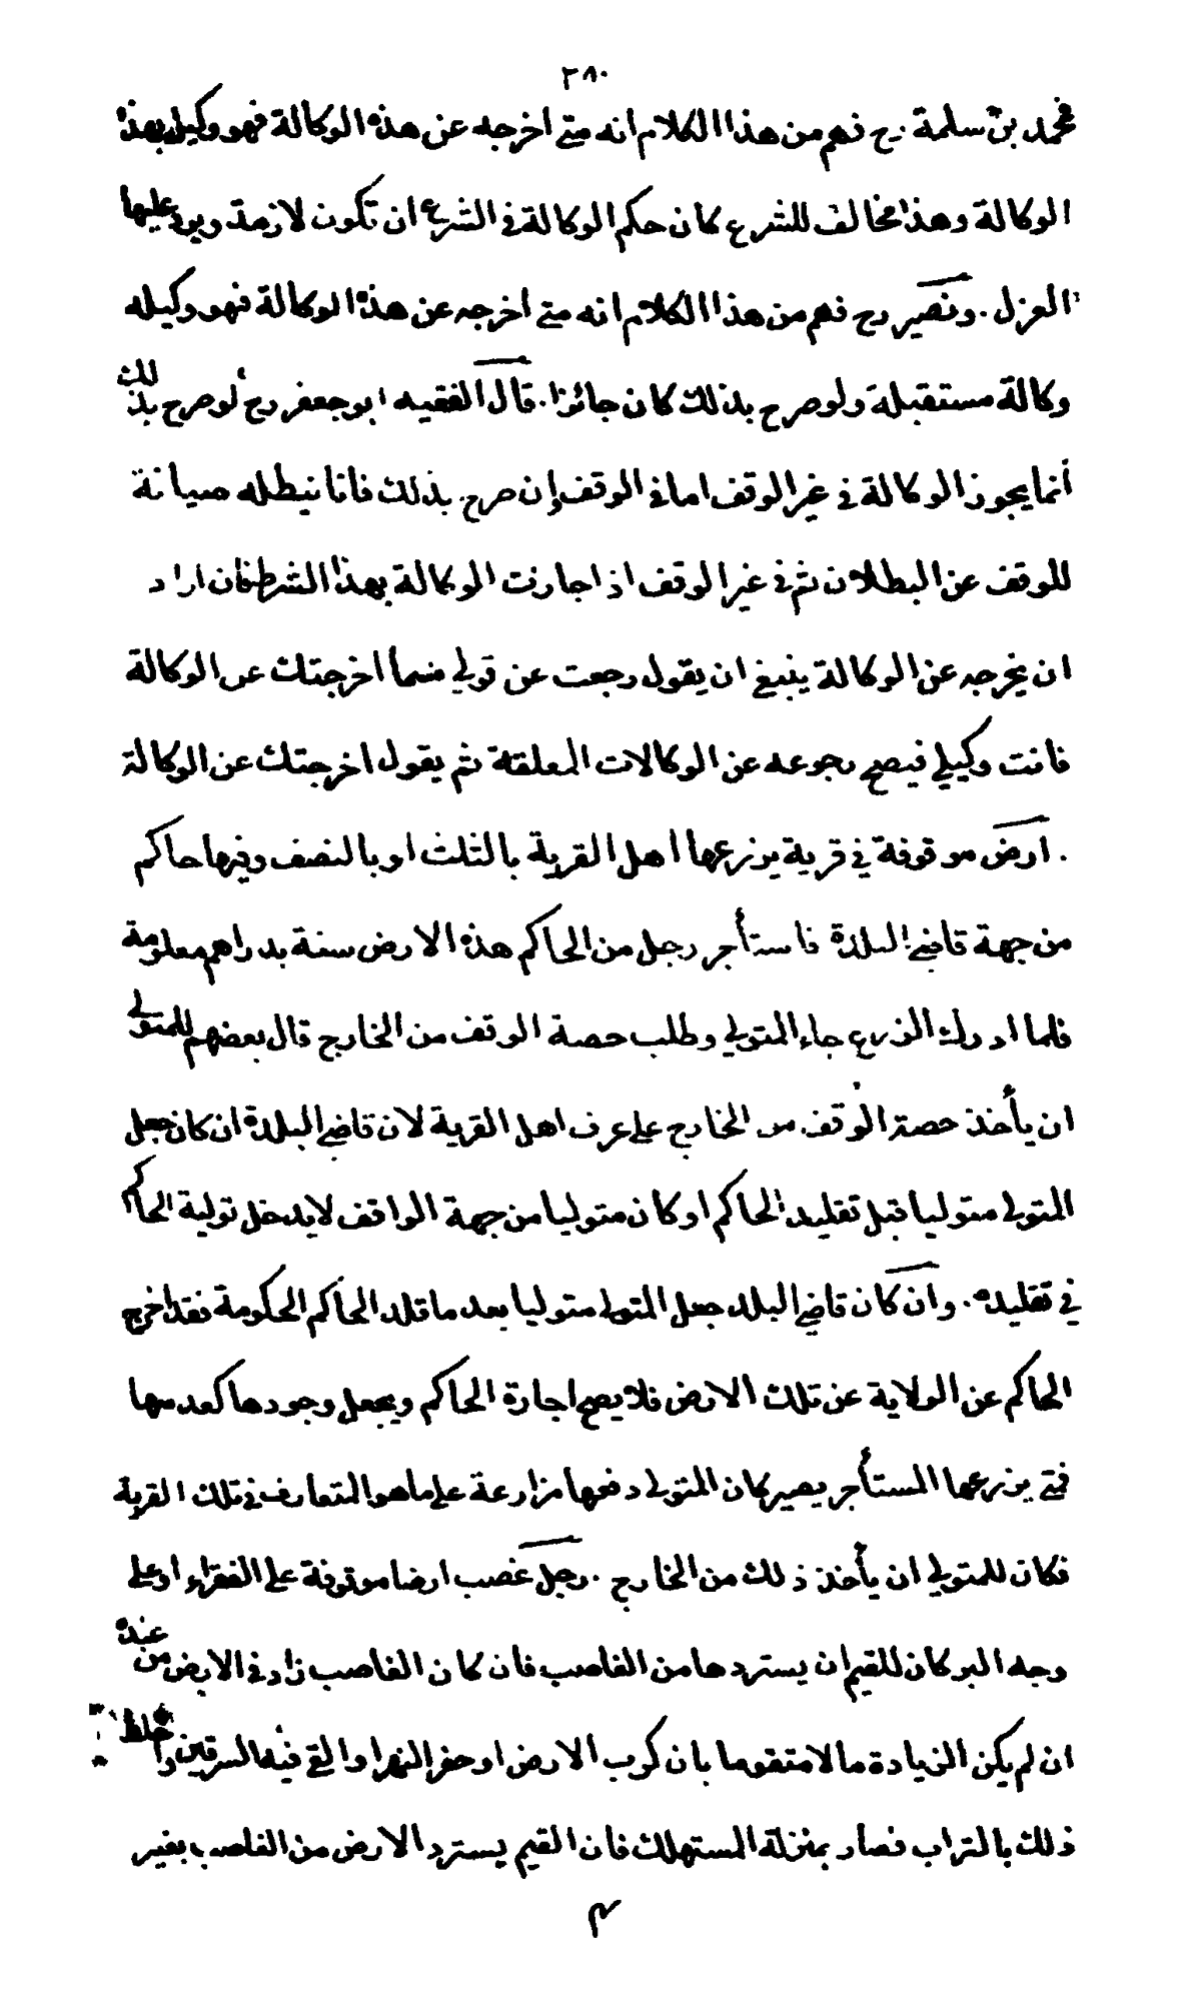 ٢٨٠
فمحمد بن سلمة رح فهم من هذا الكلام انه متى اخرجه عن هذه الوكالة فهو وكيل بهذه
الوكالة وهذا مخالف للشرع كان حكم الوكالة في الشرع ان تكون لازمة ويرد عليها
العزل . ونصير رح فهم من هذا الكلام انه متى اخرجه عن هذه الوكالة فهو وكيله
وكالة مستقبلة ولو صرح بذلك كان جائزا . قال الفقيه ابو جعفر رح لو صرح بذلك
أنما يجوز الوكالة في غير الوقف اما في الوقف وإن صرح بذلك فانا نبطله صيانة
للوقف عن البطلان ثم في غير الوقف اذا جازت الوكالة بهذا الشرط فان اراد
ان يخرجه عن الوكالة ينبغي ان يقول رجعت عن قولي متما اخرجتك عن الوكالة
فانت وكيلي فيصح رجوعه عن الوكالات المعلقة ثم يقول اخرجتك عن الوكالة
. ارض موقوفة في قرية يزرعها اهل القرية بالثلث او بالنصف وفيها حاكم
من جهة قاضي البلدة فاستأجر رجل من الحاكم هذه الارض سنة بدراهم معلومة
فلما ادرك الزرع جاء المتولي وطلب حصة الوقف من الخارج قال بعضهم للمتولي
ان يأخذ حصة الوقف من الخارج على عرف اهل القرية لان قاضي البلدة ان كان جعل
المتولي متوليا قبل تقليد الحاكم او كان متوليا من جهة الواقف لا يدخل تولية الحاكم
في تقليده . وان كان قاضي البلد جعل المتولي متوليا بعد ما قلد الحاكم الحكومة فقد اخرج
الحاكم عن الولاية عن تلك الارض فلا يصح اجارة الحاكم ويجعل وجودها كعدمها
فمتى يزرعها المستأجر يصير كان المتولي دفعها مزارعة على ما هو المتعارف في تلك القرية
فكان للمتولي ان يأخذ ذلك من الخارج . رجل غصب ارضا موقوفة على الفقراء او على
وجه البر كان للقيم ان يستردها من الغاصب فان كان الغاصب زاد في الارض من عنده
ان لم يكن الزيادة مالا متقوما بان كرب الارض او حفر النهر او القى فيه السرقين واختلط
ذلك بالتراب فصار بمنزلة المستهلك فان القيم يسترد الارض من الغاصب بغير